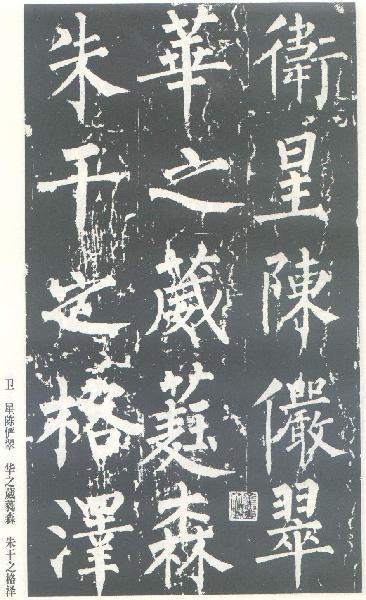 衛星陳儼翠
華之葳蕤森
朱干之格澤
卫 星陈俨翠 华之葳蕤森 朱干之格泽